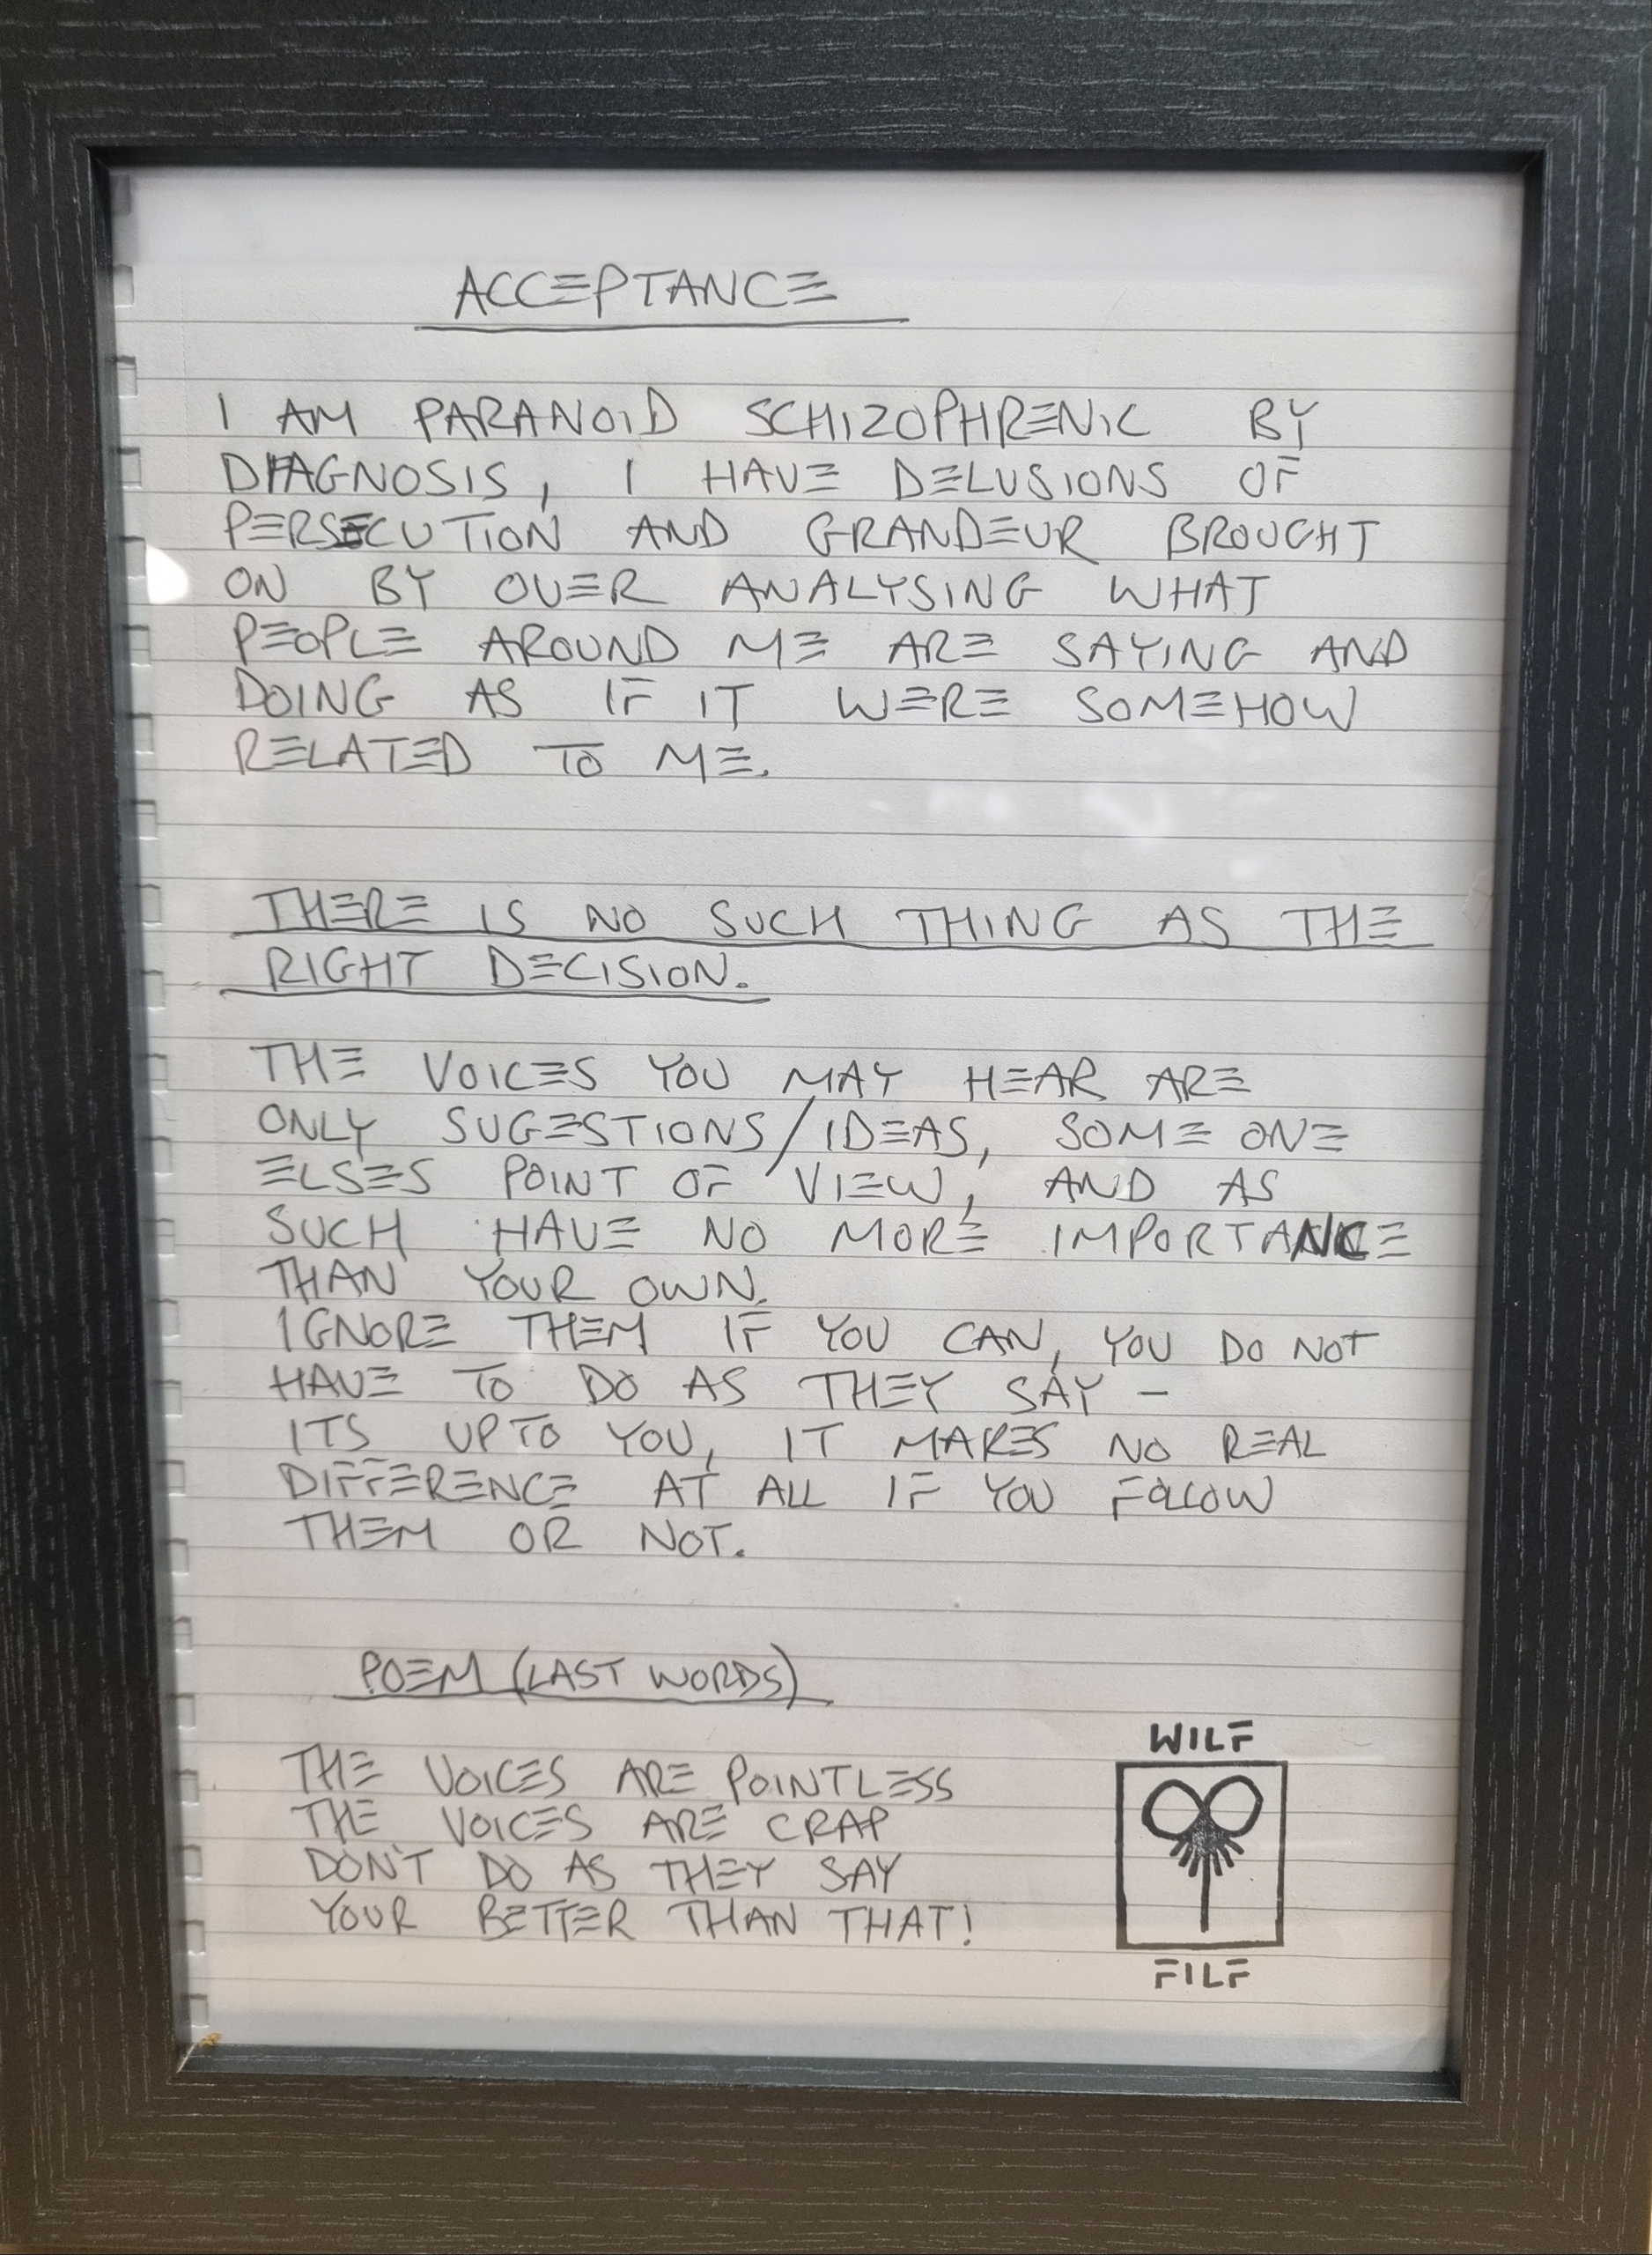 ACCEPTANCE
I AM PARANOID SCHIZOPHRENIC BY
DIAGNOSIS, I HAVE DELUSIONS OF
PERSECUTION AND GRANDEUR BROUGHT
ON BY OVER ANALYSING WHAT
PEOPLE AROUND ME ARE SAYING AND
DOING AS IF IT WERE SOMEHOW
RELATED TO ME.
THERE IS NO SUCH THING AS THE
RIGHT DECISION.
THE VOICES YOU MAY HEAR ARE
ONLY SUGESTIONS/IDEAS, SOME ONE
ELSES POINT OF VIEW, AND AS
SUCH HAVE NO MORE IMPORTANCE
THAN YOUR OWN.
IGNORE THEM IF YOU CAN, YOU DO NOT
HAVE TO DO AS THEY SAY -
ITS UPTO YOU, IT MAKES NO REAL
DIFFERENCE AT ALL IF YOU FOLLOW
THEM OR NOT.
POEM (LAST WORDS)
THE VOICES ARE POINTLESS
THE VOICES ARE CRAP
DON'T DO AS THEY SAY
YOUR BETTER THAN THAT!
WILF
FILF